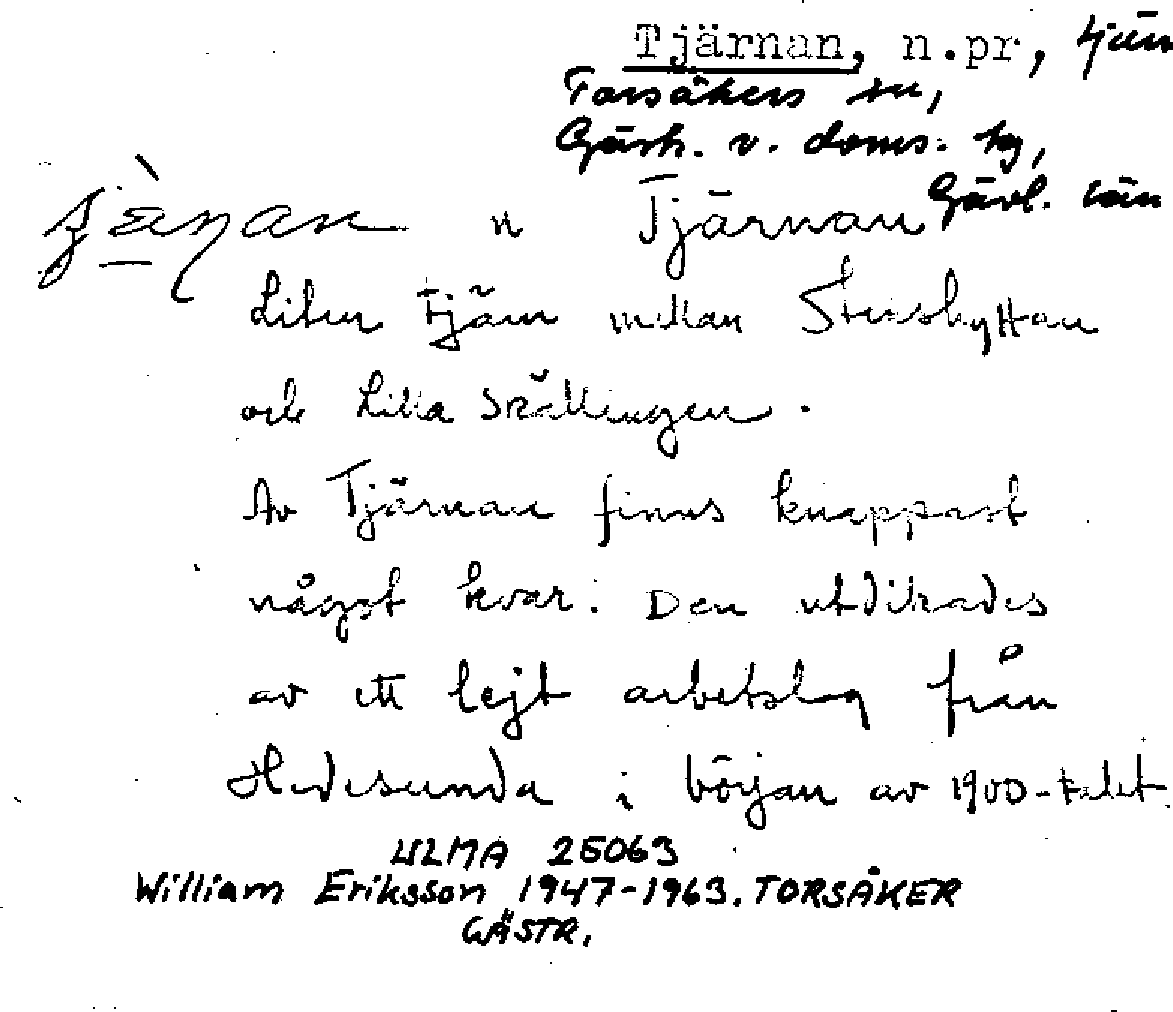 Tjärnan, n.pr, tjärn
Torsåkers sn,
Gästr. v. doms. tg,
Gävl. län
n Tjärnan
Liten tjärn mellan Stenshyttan
och Lilla Skällingen.
Av Tjärnan finns knappast
något kvar. Den utdikades
av ett lejt arbetslag från
Hedesunda i början av 1900-talet.
ULMA 25063
William Eriksson 1947-1963. TORSÅKER
GÄSTR.